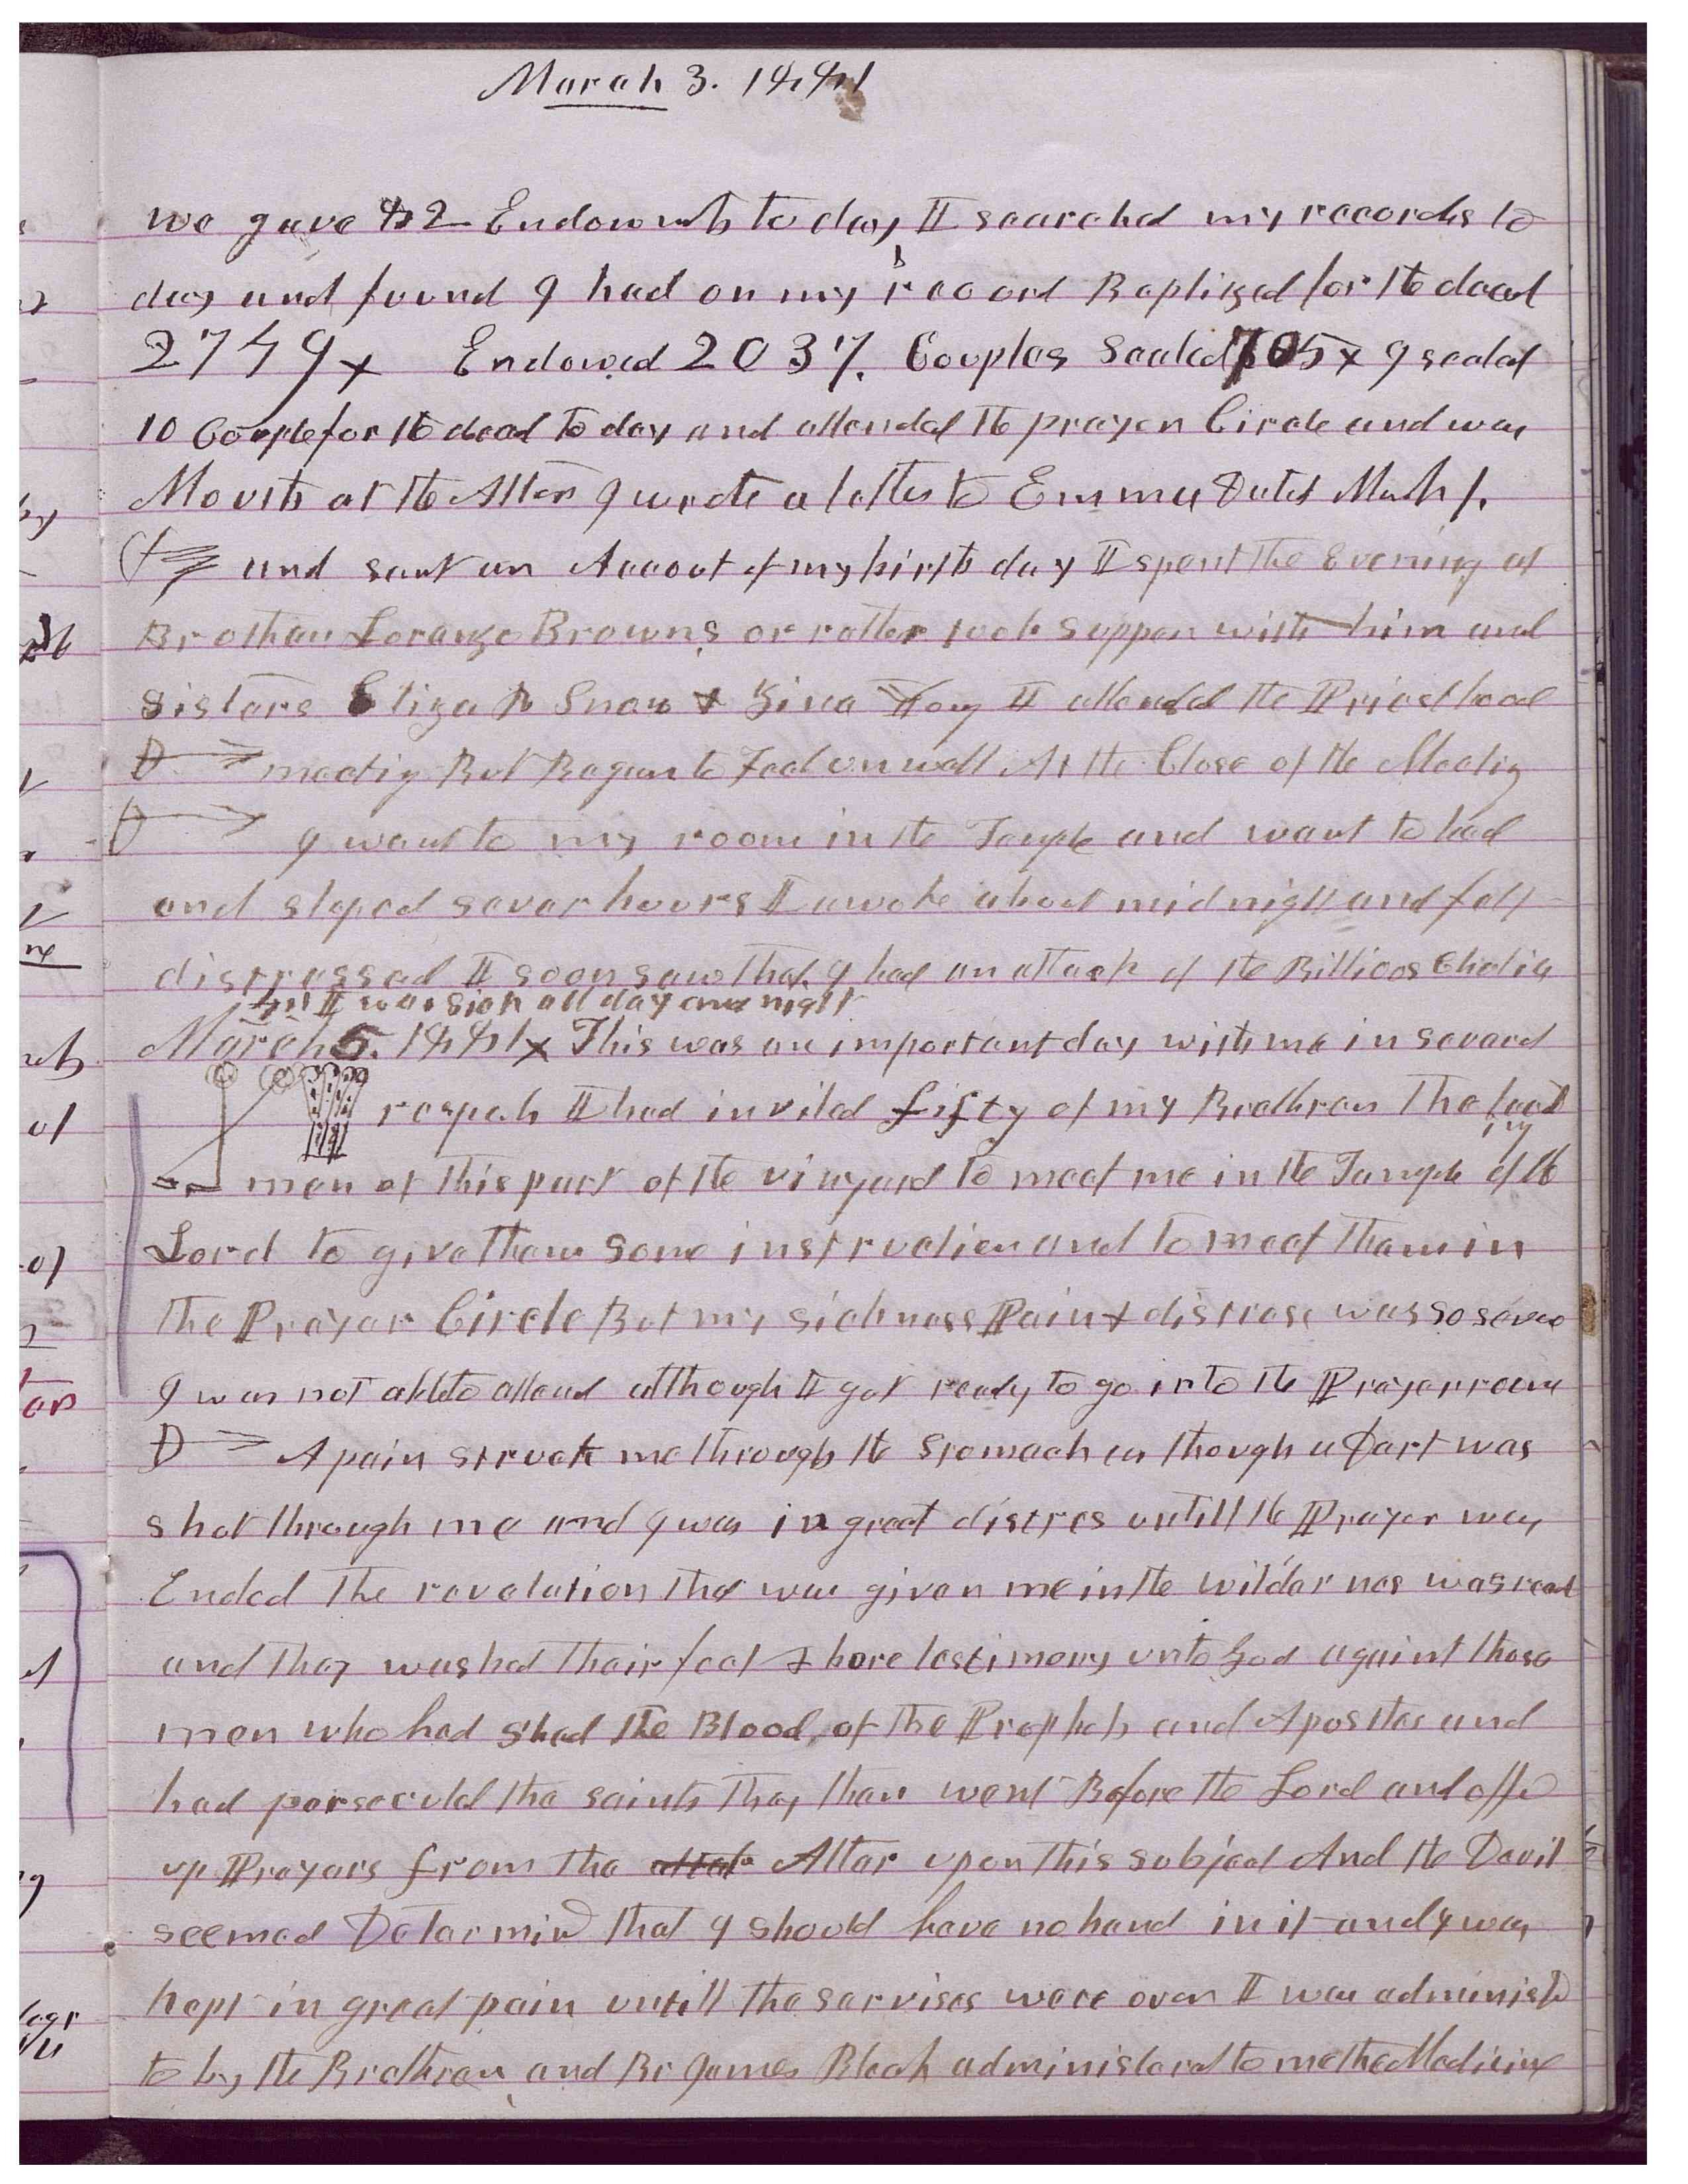 March 3. 1881
we gave 82 Endowmts to day I searched my records to
day and found I had on my record Baptized for the dead
2749 x Endowed 2037. Couples Sealed 705 x I sealed
10 Couple for the dead to day and attended the prayer Circle and was
Mouth at the Alter I wrote a letter to Emma Dated March 1.
and sent an Accout of my birth day I spent the Evening at
Brother Loranzo Browns or rather took supper with him and
Sisters Eliza R Snow & Zina Young I attended the Priesthood
meetig But Began to Feel unwell At the Close of the Meetig
I went to my room in the Temple and went to bed
and sleped sever hours I awoke about midnight and felt
distressed I soon saw that I had an attack of the Billioos Cholic
4th I was sick all day and night
March 5. 1881 x This was an important day with me in several
respects I had invited fifty of my Brethren The leadig
men of this part of the vineyard to meet me in the Temple of the
Lord to give them some instruction and to meet them in
the Prayer Circle But my sickness Pain & distress was so severe
I was not able to attend although I got ready to go into the Prayer room
A pain struck me through the stomach as though a Dart was
shot through me and I was in great distres untill the Prayer was
Ended The revelation that was given me in the wildernes was read
and they washed their feet & bore testimony unto God against those
men who had shed the Blood of the Prophets and Apostles and
had persecuted the saints They then went Before the Lord and offed
up Prayers from the Altar upon this subject And the Devil
seemed Determined that I should have no hand in it and I was
kept in great pain untill the servises were over I was administed
to by the Brethren and Br James Bleak administered to me the Medicine